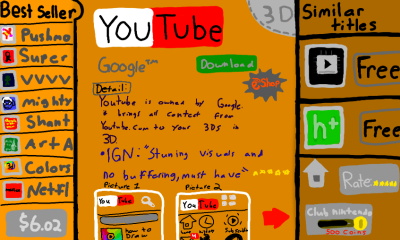 Best Seller
Pushmo
Super
VVVV
mighty
Shant
Art A
Colors
Netfl
$6.02
YouTube
3D
Google™
Download
e-Shop
Detail:
Youtube is owned by Google
& brings all content from
Youtube.com to your 3DS in
3D
•IGN: "Stuning visuals and
no buffering, must have"
Picture 1
Picture 2
YouTube
how to
Draw
YouTube
Similar
titles
Free
h+
Free
Rate:
Club nintendo
500 coins